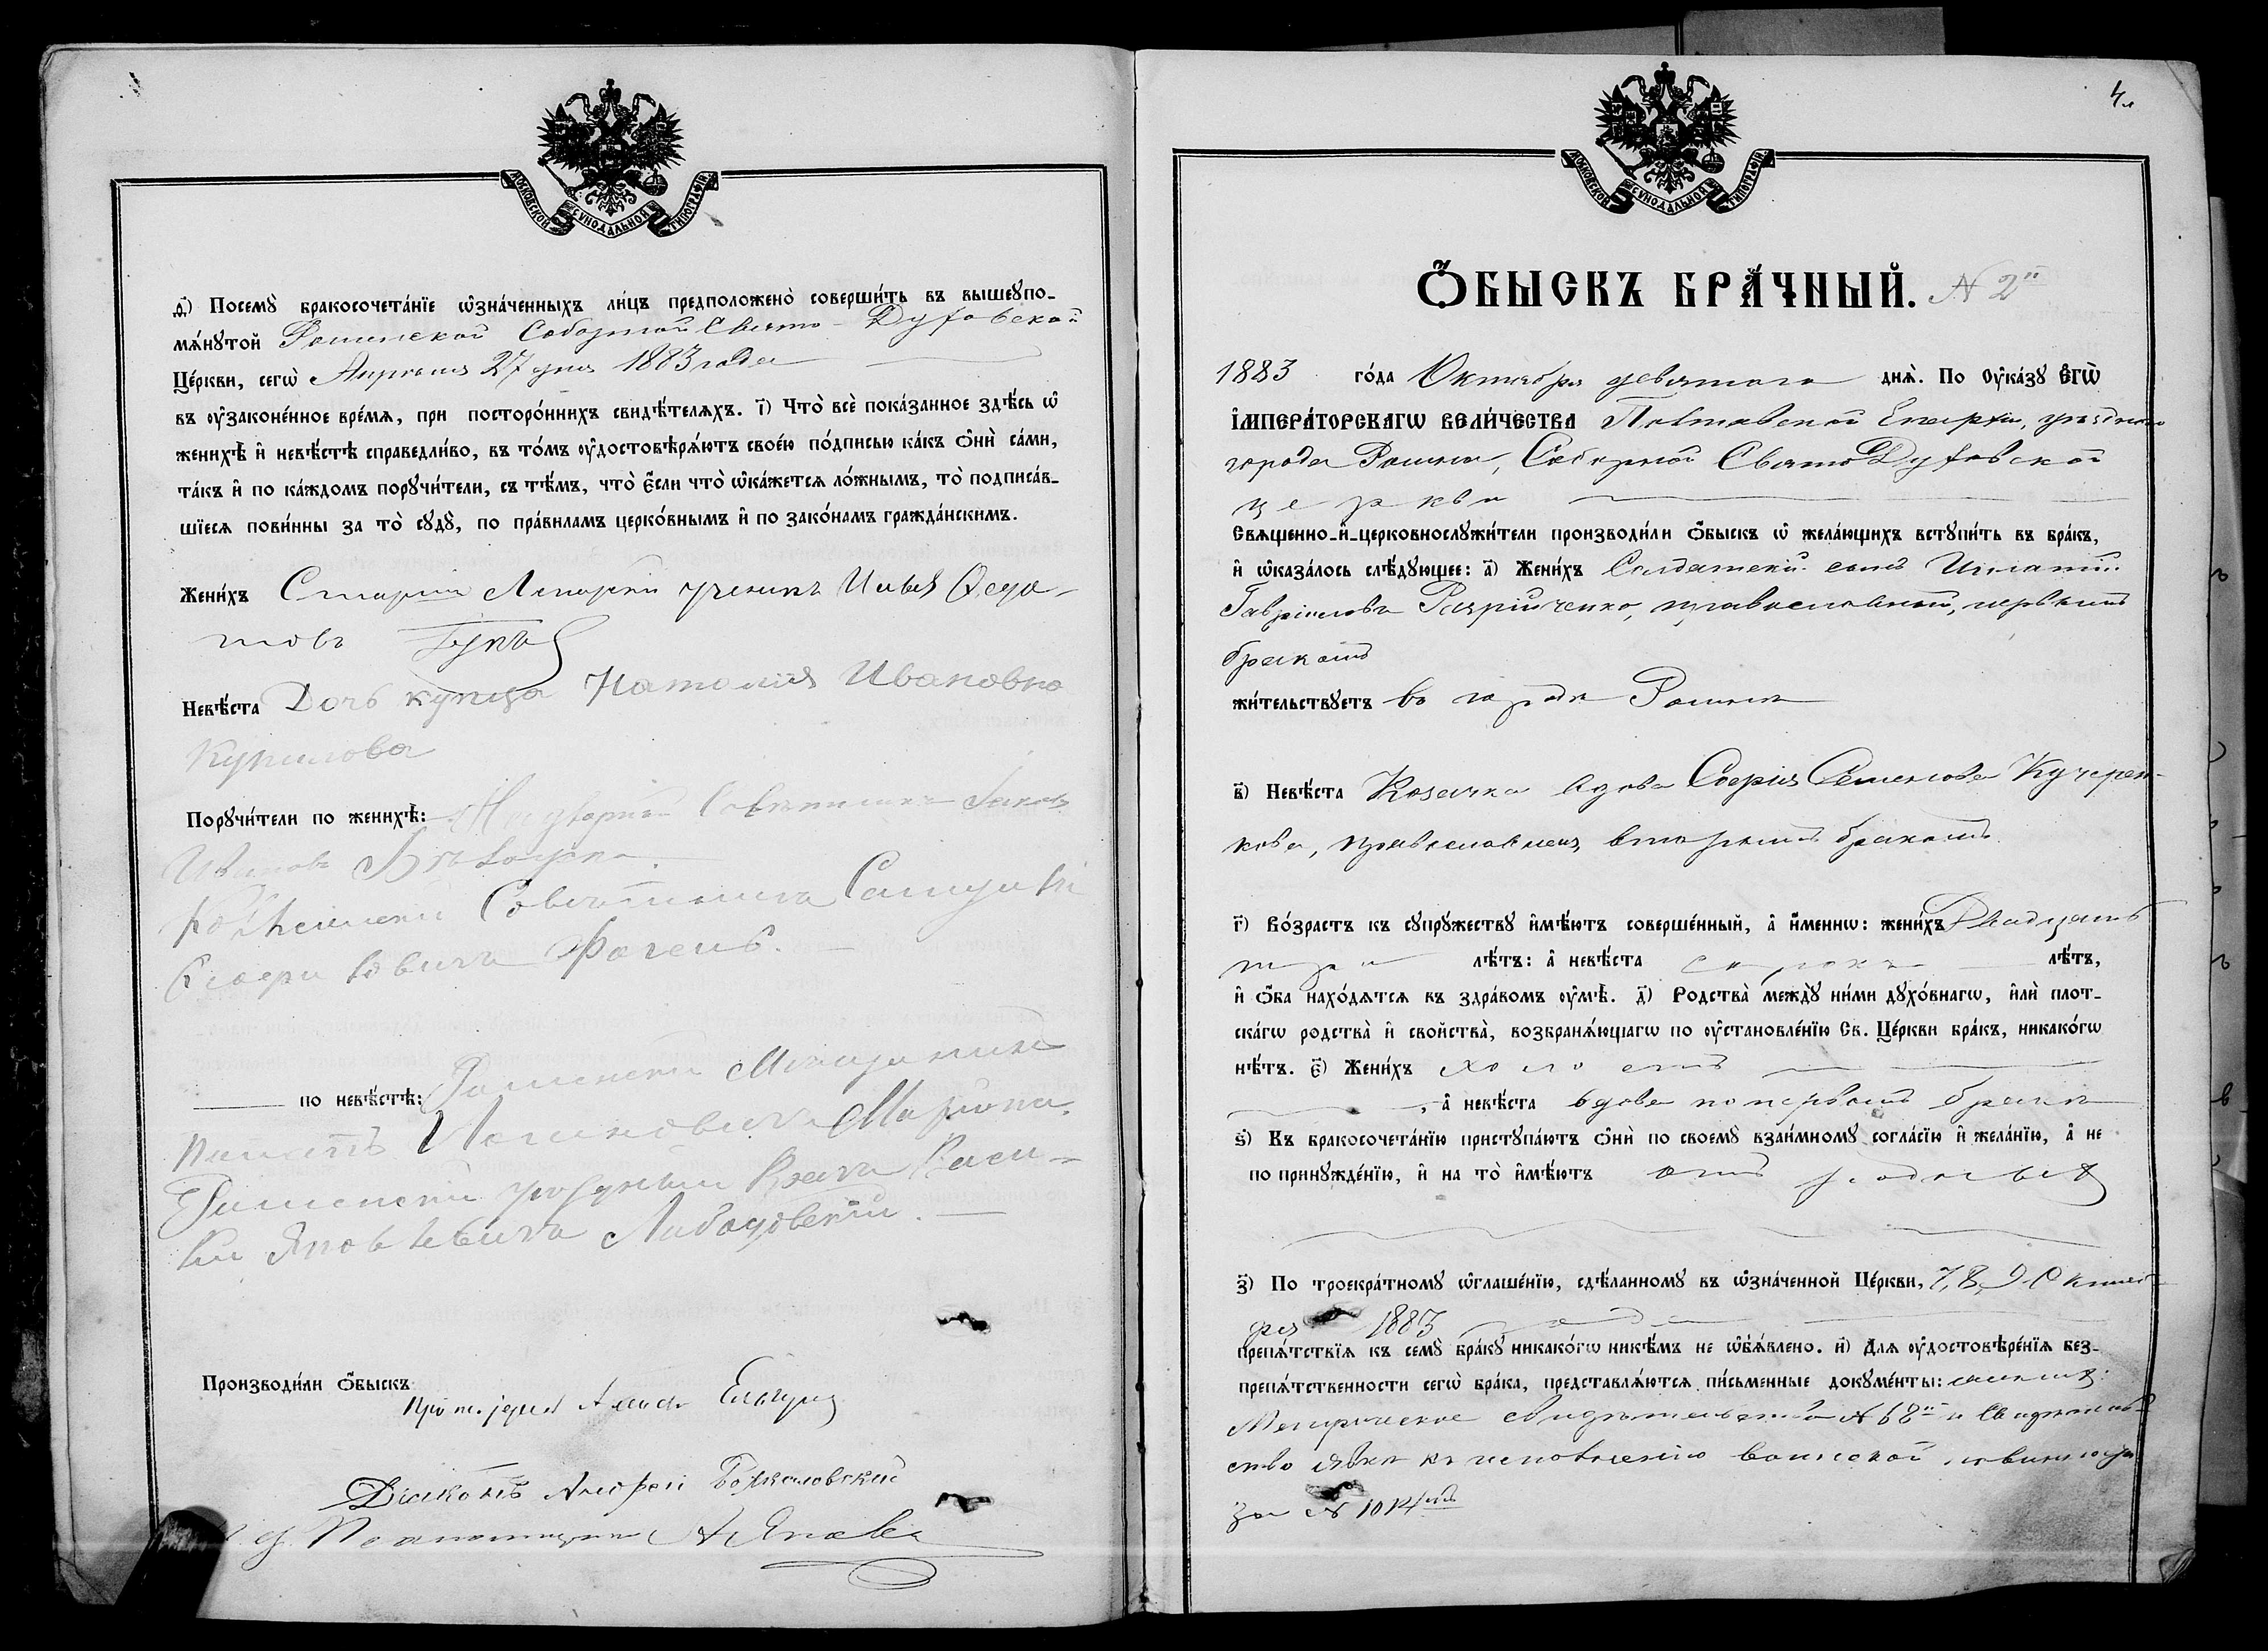 МОСКОВСКОЙ СѴНОДАЛЬНОЙ ТИПОГРАФІИ
д҃) Посемꙋ̀ бракосочета́нїе ѡ҆зна́ченныхъ ли́цъ предположено̀ соверши́ть въ вышеꙋпо-
мѧ́нꙋтой Роменской Соборной Свято-Духовской
Це́ркви, сегѡ̀ Апреля 27 дня 1883 года
въ ᲂу҆законе́нное вре́мѧ, при посторо́ннихъ свидѣ́телѧхъ. і҃) Что̀ всѐ пока́занное здѣ́сь ѡ҆
женихѣ̀ и҆ невѣ́стѣ справедли́во, въ то́мъ ᲂу҆достовѣрѧ́ютъ свое́ю по́дписью ка́къ ѻ҆нѝ са́ми,
та́къ и҆ по ка́ждомъ порꙋчи́тели, съ тѣ́мъ, что̀ є҆́сли что̀ ѡ҆ка́жетсѧ ло́жнымъ, то̀ подписа́в-
шїесѧ пови́нны за то̀ сꙋдꙋ̀, по пра́виламъ церко́внымъ и҆ по зако́намъ гражда́нскимъ.
Жени́хъ Старший Лекарский ученикъ Илья Федо-
товъ
Невѣ́ста Дочь купца Наталия Ивановна
Курилова
Порꙋчи́тели по женихѣ̀: Надворный Советникъ Яковъ
Ивановъ
Коллежский Советникъ
Фогель.
по невѣ́стѣ: Роменский Мещанинъ
Роменский уездный Врачъ Васи-
лий Яковлевичъ Лободовский.
Производи́ли ѻ҆́быскъ
Протоіерей
Діаконъ Андрей
4
МОСКОВСКОЙ СѴНОДАЛЬНОЙ ТИПОГРАФІИ
Ѻ҆́БЫСКЪ БРА́ЧНЫЙ. N 2й
1883 го́да Октября девятого днѧ̀. По ᲂу҆ка́зꙋ Є҆ГѠ̀
И҆МПЕРА́ТОРСКАГѠ ВЕЛИ́ЧЕСТВА Полтавской Епархіи, уѣздного
города Ромна, Соборной Свято Духовской
церкви
Свѧщенно-и҆-церковнослꙋжи́тели производи́ли ѻ҆́быскъ ѡ҆ жела́ющихъ встꙋпи́ть въ бра́къ,
и҆ ѡ҆каза́лось слѣ́дꙋющее: а҃) Жени́хъ Солдатский сынъ Игнатій
Гавріиловъ православный, первымъ
бракомъ
жи́тельствꙋетъ въ городѣ Ромнѣ
в҃) Невѣ́ста Козачка вдова Софія Семенова Кучерен-
кова, православная, вторымъ бракомъ
г҃) Во́зрастъ къ сꙋпрꙋ́жествꙋ и҆мѣ́ютъ соверше́нный, а҆ и҆́меннѡ: жени́хъ Двадцать
три лѣ́тъ: а҆ невѣ́ста сорокъ лѣ́тъ,
и҆ ѻ҆́ба нахо́дѧтсѧ въ здра́вомъ ᲂу҆мѣ̀. д҃) Родства̀ междꙋ̀ ни́ми дꙋхо́внагѡ, и҆лѝ плот-
ска́гѡ родства̀ и҆ сво́йства̀, возбранѧ́ющагѡ по ᲂу҆становле́нїю Св. Це́ркви бра́къ, никако́гѡ
нѣ́тъ. є҃) Жени́хъ холостъ
, а҆ невѣ́ста вдова по первомъ бракѣ
ѕ҃) Къ бракосочета́нїю пристꙋпа́ютъ ѻ҆нѝ по своемꙋ̀ взаи́мномꙋ согла́сїю и҆ жела́нїю, а҆ не
по принꙋжде́нїю, и҆ на то̀ и҆мѣ́ютъ
з҃) По троекра́тномꙋ ѡ҆глаше́нїю, сдѣ́ланномꙋ въ ѡ҆зна́ченной Це́ркви, 7, 8, 9 Октяб-
ря 1883 года
препѧ́тствїѧ къ семꙋ̀ бра́кꙋ никако́гѡ никѣ́мъ не ѡ҆бъѧ́влено. и҃) Длѧ ᲂу҆достовѣре́нїѧ без-
препѧ́тственности сегѡ̀ бра́ка, представлѧ́ютсѧ пи́сьменные докꙋме́нты:
Метрическое свидетельство N 68й и Свидетель-
ство явки къ исполнению воинской повинности
за N 1014мъ